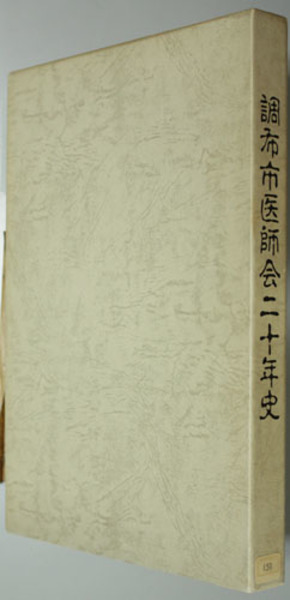 調布市医師会二十年史